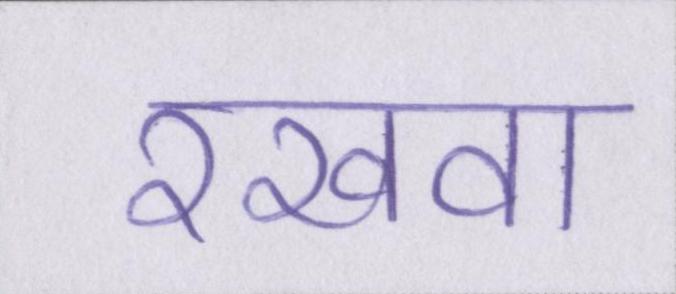 रखवा